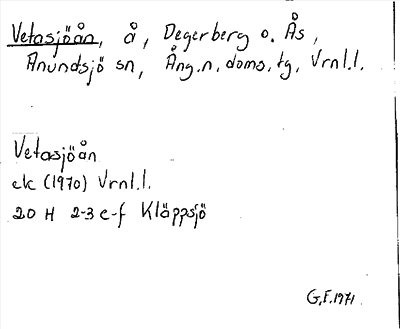 Vetasjöån, å, Degerberg o. Ås,
Anundsjö sn, Ång.n. doms. tg, Vrnl.l.
Vetasjöån
ek (1970) Vrnl.l.
20 H 2-3 e-f Kläppsjö
G.F. 1971